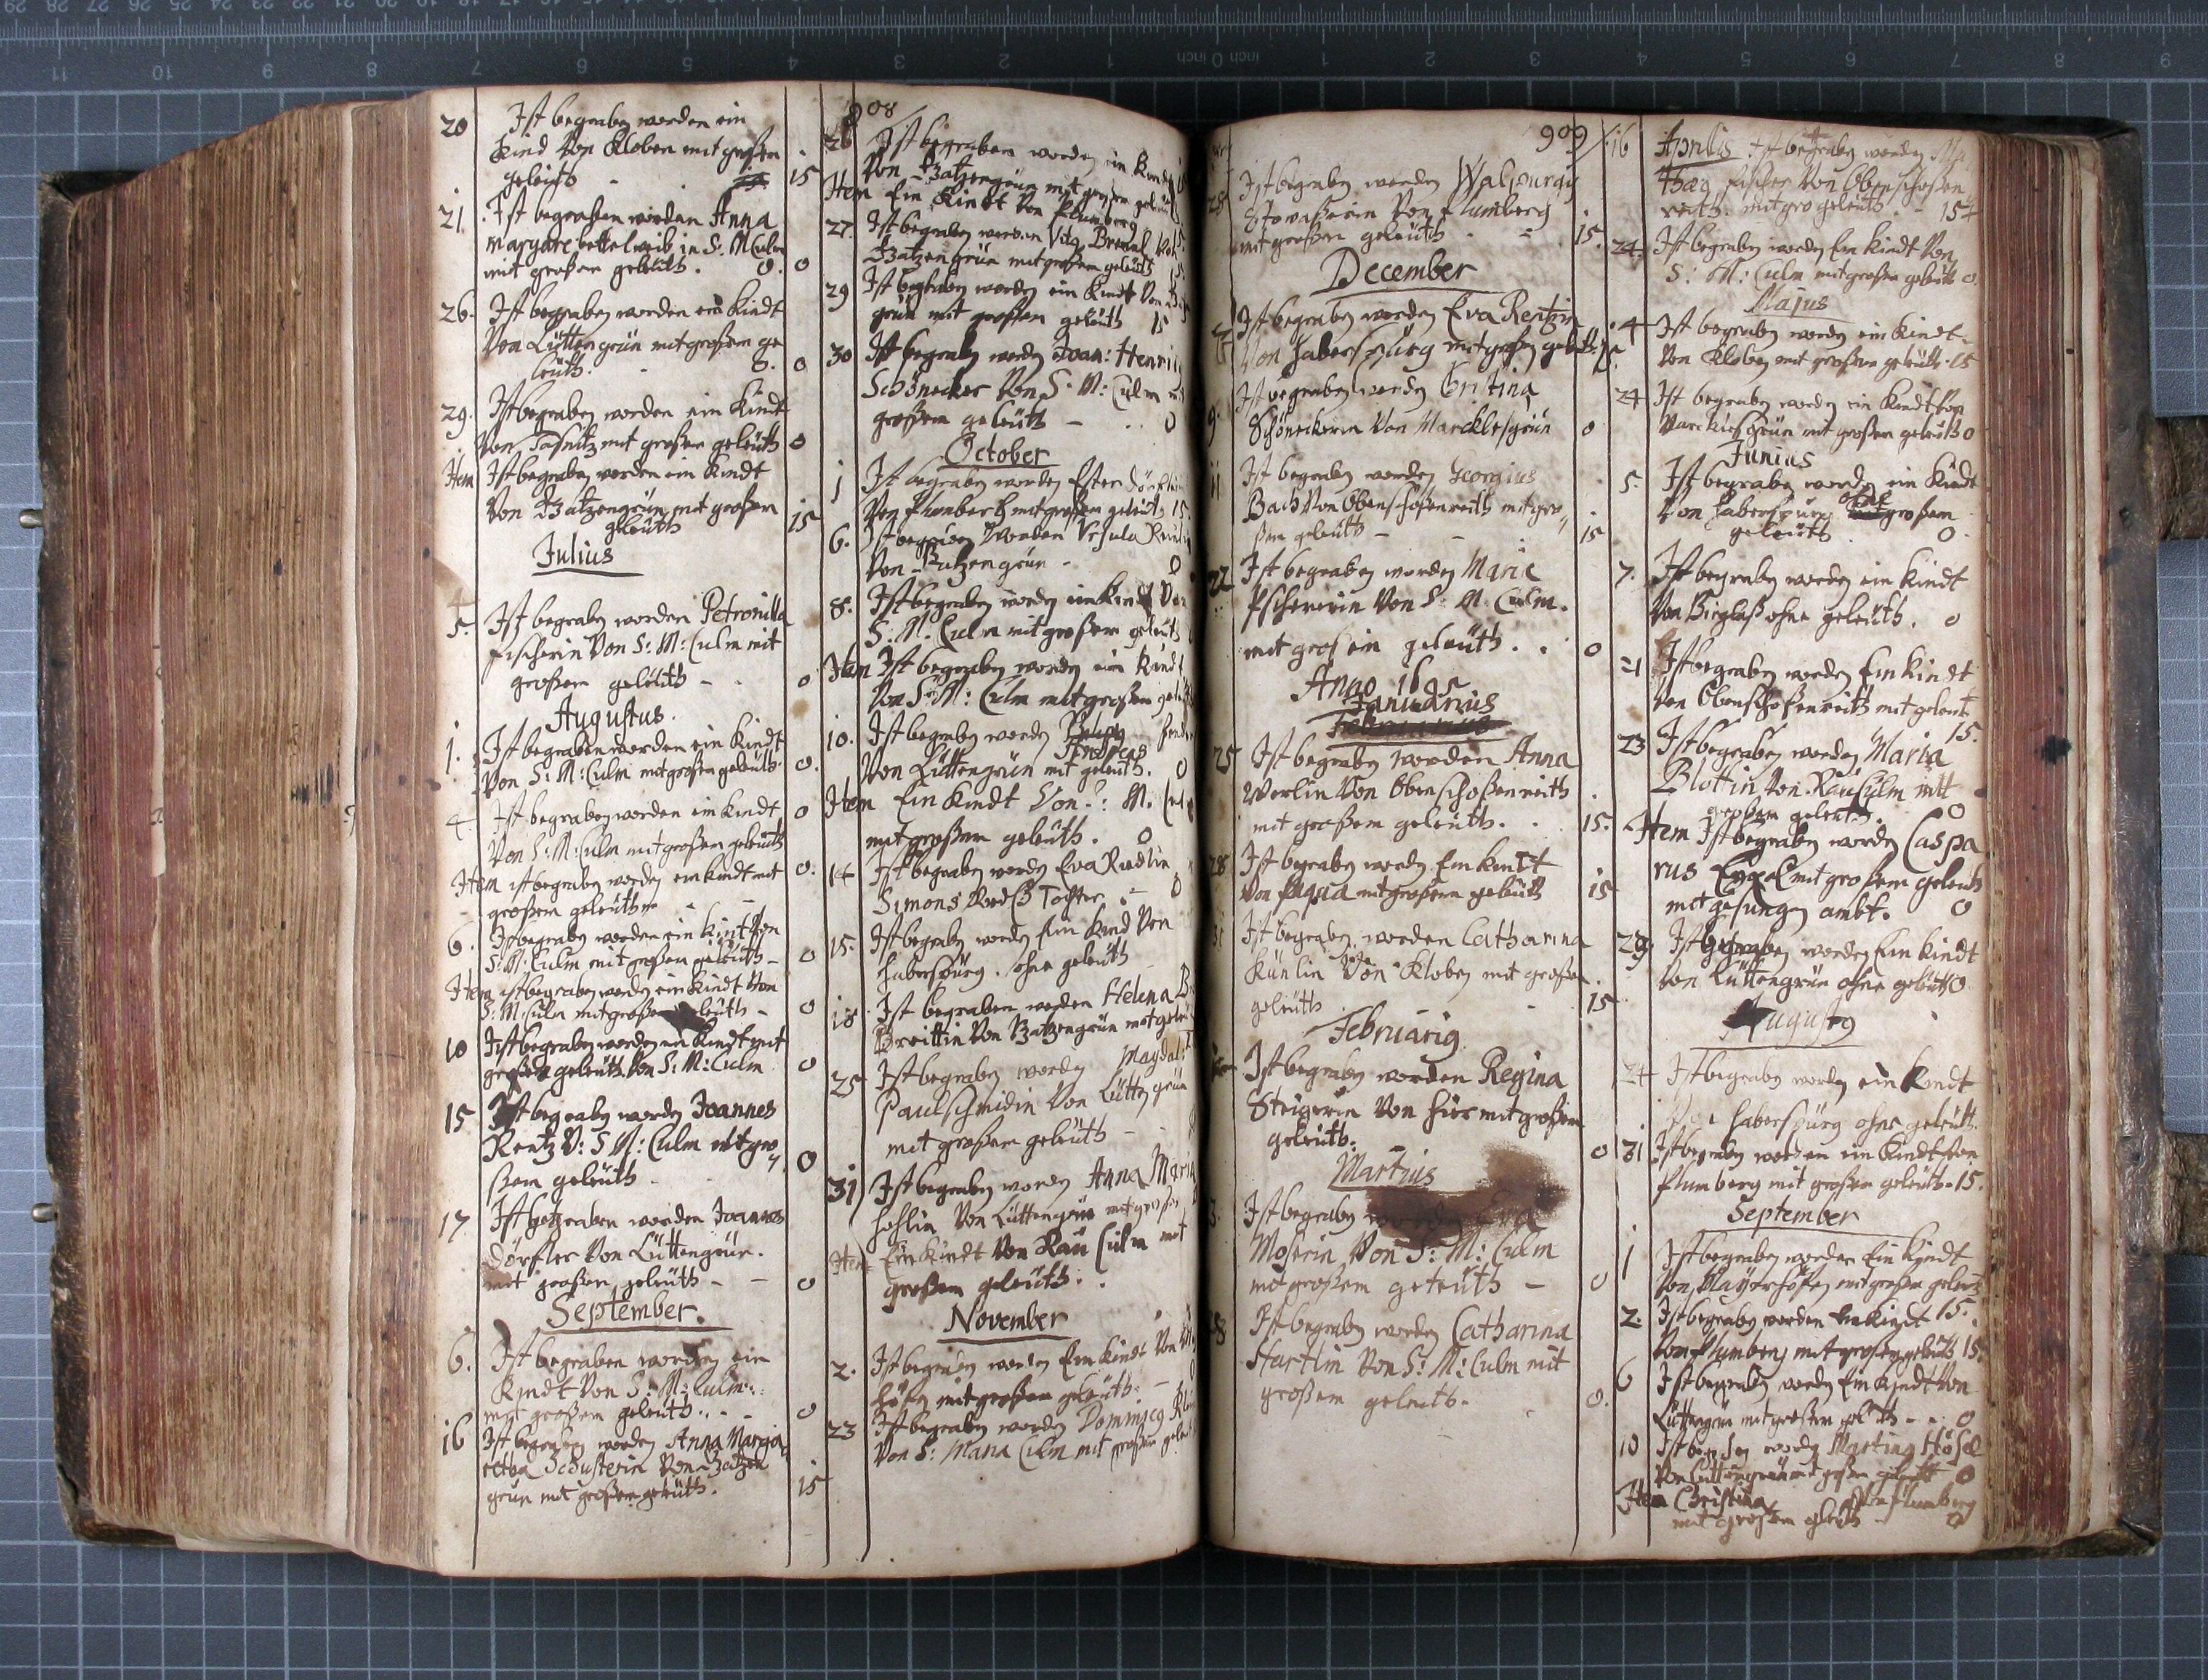 908
20 Ist begraben worden ein
Kind von Kloben mit großen
geleüth 15
21. Ist begraben worden Anna
Margare bettelweib in S: M Culm
mit großem geleüth. 0. 0
26. Ist begraben worden ein Kindt
Von Lüttengrün mit großem ge
leüth. 0. 0
29. Ist begraben worden ein Kindt
Von mit großen geleüth 0
Item Ist begraben worden ein Kindt
Von Batzengrün mit großen
geleüth 15
Julius
5. Ist begraben worden Petronilla
Fischerin Von S: M: Culm mit
großem geleüth - 0
Augustus.
1. Ist begraben worden ein Kindt
Von S: M: Culm mit großen geleüth. 0.
4. Ist begraben worden ein Kindt 0
Von S: M: Culm mit großem geleüth
Item ist begraben worden ein kindt mit 0.
großem geleüth
6. Ist begraben worden ein Kindt Von
S: M: Culm mit großen geleüth - 0
Item ist begraben worden ein kindt Von
S: M: Culm mit großen geleüth - 0
10 Ist begraben worden ein Kindt mit
großem geleüth Von S: M: Culm 0
15 Ist begraben worden Joannes
Rentz V: S M: Culm mit gro
ßem geleüth 0
17. Ist begraben worden Joannes
Dörfler Von Lüttengrün.
mit großen geleüth - - 0
September.
6. Ist begraben worden ein
Kindt Von S: M: Culm:
mit großem geleüth. 0
16 Ist begraben worden Anna Marga
retha Schusterin Von Batzen
grün mit großem geleüth. 15
26 Ist begraben worden ein Kindt
Von Batzengrün mit großem geleüth
Item Ein Kindt Von Plumberg
27. Ist begraben worden Vitg
Batzengrün mit großem geleüth
29 Ist begraben worden ein Kindt Von
grün mit großen geleüth 15
30 Ist begraben worden Joan: Henri
Schönecker Von S: M: Culm
großem geleüth - 0
October
1 Ist begraben worden Ester
Von Plumberg mit großem geleüth 15.
6. Ist begraben worden Ursula
Von Batzengrün - 0
8. Ist begraben worden ein Kindt Von
S: M: Culm mit großem geleüth
Item Ist begraben worden ein Kindt
Von S: M: Culm mit großem
10. Ist begraben worden
Andreas
Von Lüttengrün mit geleüth. 0
Item Ein Kindt Von S: M.
mit großem geleüth. 0
14 Ist begraben worden Eva Riedlin
Simons Tochter. - 0
15. Ist begraben worden Ein Kind Von
Haberspürg. ohne geleüth
18 Ist begraben worden Helena
Breittin Von Batzengrün mit
25 Ist begraben worden Magdal:
Paulschmidin Von Lüttengrün
mit großem geleüth - -
31 Ist begraben worden Anna Maria
Von Lüttengrün mit großen
Item Ein Kindt Von Rau Culm mit
großem geleüth.
November
2. Ist begraben worden Ein Kindt Von
höfen mit großem geleüth. -
23 Ist begraben worden Dominicg
Von S: Maria Culm mit großem
909
28 Ist begraben worden Walpurgg
Von Plumberg
mit großem geleüth 15.
December
Ist begraben worden Eva Rentzin
Von Haberspürg mit großen geleüth
9. Ist begraben worden Cristina
Schöneckerin Von Marcklesgrün 0
11 Ist begraben worden Georgius
Bach Von Obenschoßenreith mit gro
ßem geleüth - - 15
22 Ist begraben worden Maria
Fischerin Von S: M: Culm.
mit großem geleüth. 0
Anno 1695
Januarius
25 Ist begraben worden Anna
Werlin Von Obenschoßenreith
mit großem geleüth. 15.
28 Ist begraben worden Ein Kindt
Von mit großem geleüth 15
31 Ist begraben worden Catharina
Künlin Von Kloben mit großem
geleüth 15
Februarig
Ist begraben worden Regina
Steigerin Von hier mit großem
geleüth. 0
Martius
3. Ist begraben worden Eva
Moserin Von S: M: Culm
mit großem geleüth - 0
28 Ist begraben worden Catharina
Hartlin Von S: M: Culm mit
großem geleüth. 0.
16 Aprilis Ist begraben worden Ma
Fischer Von Obenschoßen
reith. mit gro geleüth. - 15
24. Ist begraben worden Ein Kindt Von
S: M: Culm mit großem geleüth 0.
Majus
4 Ist begraben worden ein Kindt
Von Kloben mit großem geleüth. 15
24 Ist begraben worden ein Kindt Von
Marcklesgrün mit großem geleüth 0
Junius
5. Ist begraben worden ein Kindt
Von Haberspürg ohne großem
geleüth. 0.
7. Ist begraben worden ein Kindt
Von ohne geleüth. 0
21 Ist begraben worden Ein Kindt
Von Obenschoßenreith mit geleüt
15.
23 Ist begraben worden Maria
Blottin Von Rau Culm mitt
großem geleüth. 0
Item Ist begraben worden Caspa
rus mit großem geleüth
mit gesungen ambt. 0
29. Ist begraben worden Ein Kindt
Von Lüttengrün ohne geleüth 0.
Augustg
24 Ist begraben worden ein Kindt
Von Haberspürg ohne geleüth.
31 Ist begraben worden ein Kindt Von
Plumberg mit großem geleüth. 15.
September
1 Ist begraben worden Ein Kindt
Von Mayerhöfen mit großem geleüt
15.
2. Ist begraben worden Ein Kindt
Von Plumberg mit großen geleüth 15.
6 Ist begraben worden Ein Kindt Von
Lüttengrün mit großem geleüth - - 0
10 Ist begraben worden Marting Hösel
Von Lüttengrün mit großem geleüth 0
Item Christina Von Plumberg
mit großem geleüth - 0